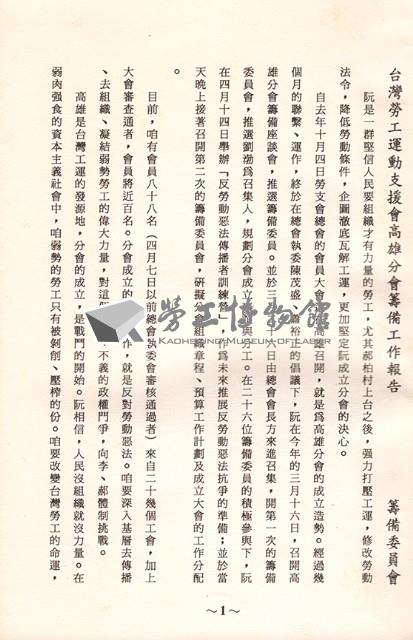 台灣勞工運動支援會高雄分會籌備工作報告
籌備委員會
阮是一群堅信人民要組織才有力量的勞工，尤其郝柏村上台之後，强力打壓工運，修改勞動
法令，降低勞動條件，企圖澈底瓦解工運，更加堅定阮成立分會的決心。
自去年十月四日勞支會總會的會員大會在高雄召開，就是爲高雄分會的成立造勢。經過幾
個月的聯繫、運作，終於在總會執委陳茂盛、裕的倡議下，阮在今年的三月十六日，召開高
雄分會籌備座談會，推選籌備委員。並於三十日由總會會長方來進召集，開第一次的籌備
委員會，推選劉渤爲召集人，規劃分會成立與工。在二十六位籌備委員的積極參與下，阮
在四月十四日舉辦「反勞動惡法傳播者訓練營爲未來推展反勞動惡法抗爭的準備；並於當
天晚上接著召開第二次的籌備委員會，研擬分會組織章程、預算工作計劃及成立大會的工作分配
。
目前，咱有會員八十八名（四月七日以前總會執委會審核通過者）來自二十幾個工會，加上
大會審查通過者，會員將近百名。分會成立的作，就是反對勞動惡法。咱要深入基層去傳播
、去組織、凝結弱勢勞工的偉大力量，對這個不義的政權鬥爭，向李、郝體制挑戰。
高雄是台灣工運的發源地，分會的成立，是戰鬥的開始。阮相信，人民沒組織就沒力量。在
弱肉强食的資本主義社會中，咱弱勢的勞工只有被剝削、壓榨的份。咱要改變台灣勞工的命運，
～1～
勞工博物館
KAOHSIUNG MUSEUM OF LABOR